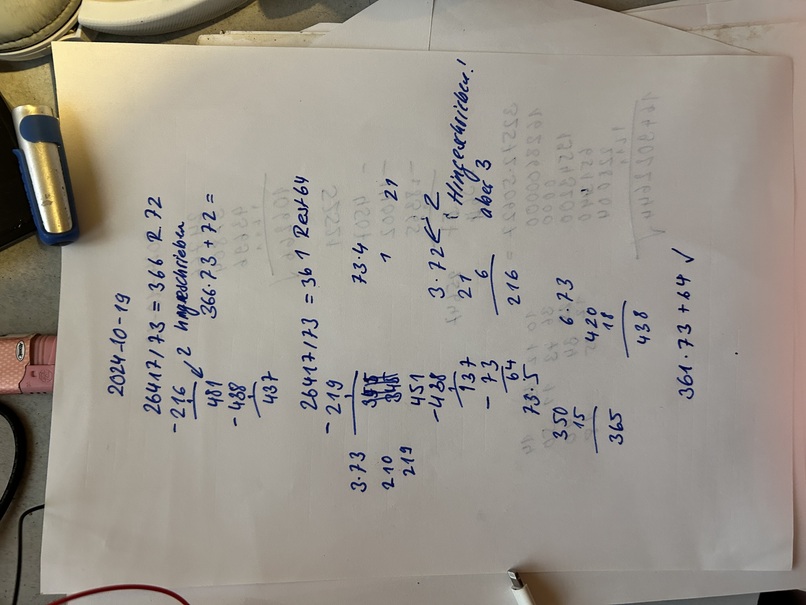 2024-10-19
26417/73 = 366 R. 72
- 216
2 hingeschrieben
481
366·73 + 72 =
- 438
437
26417/73 = 361 Rest 64
- 219
3·73
73·4
210
1
21
219
451
- 438
3·72 2
137
21
Hingeschrieben!
- 73
6
aber 3
64
216
73·5
350
6·73
15
420
365
18
438
361·73 + 64 √